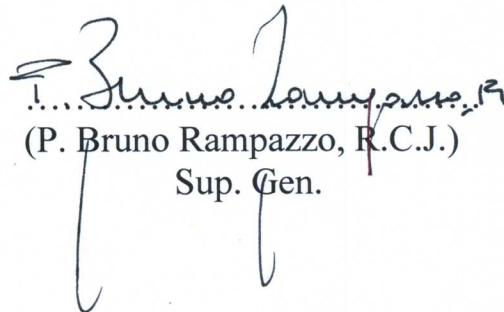 P. Bruno Rampazzo, R
(P. Bruno Rampazzo, R.C.J.)
Sup. Gen.